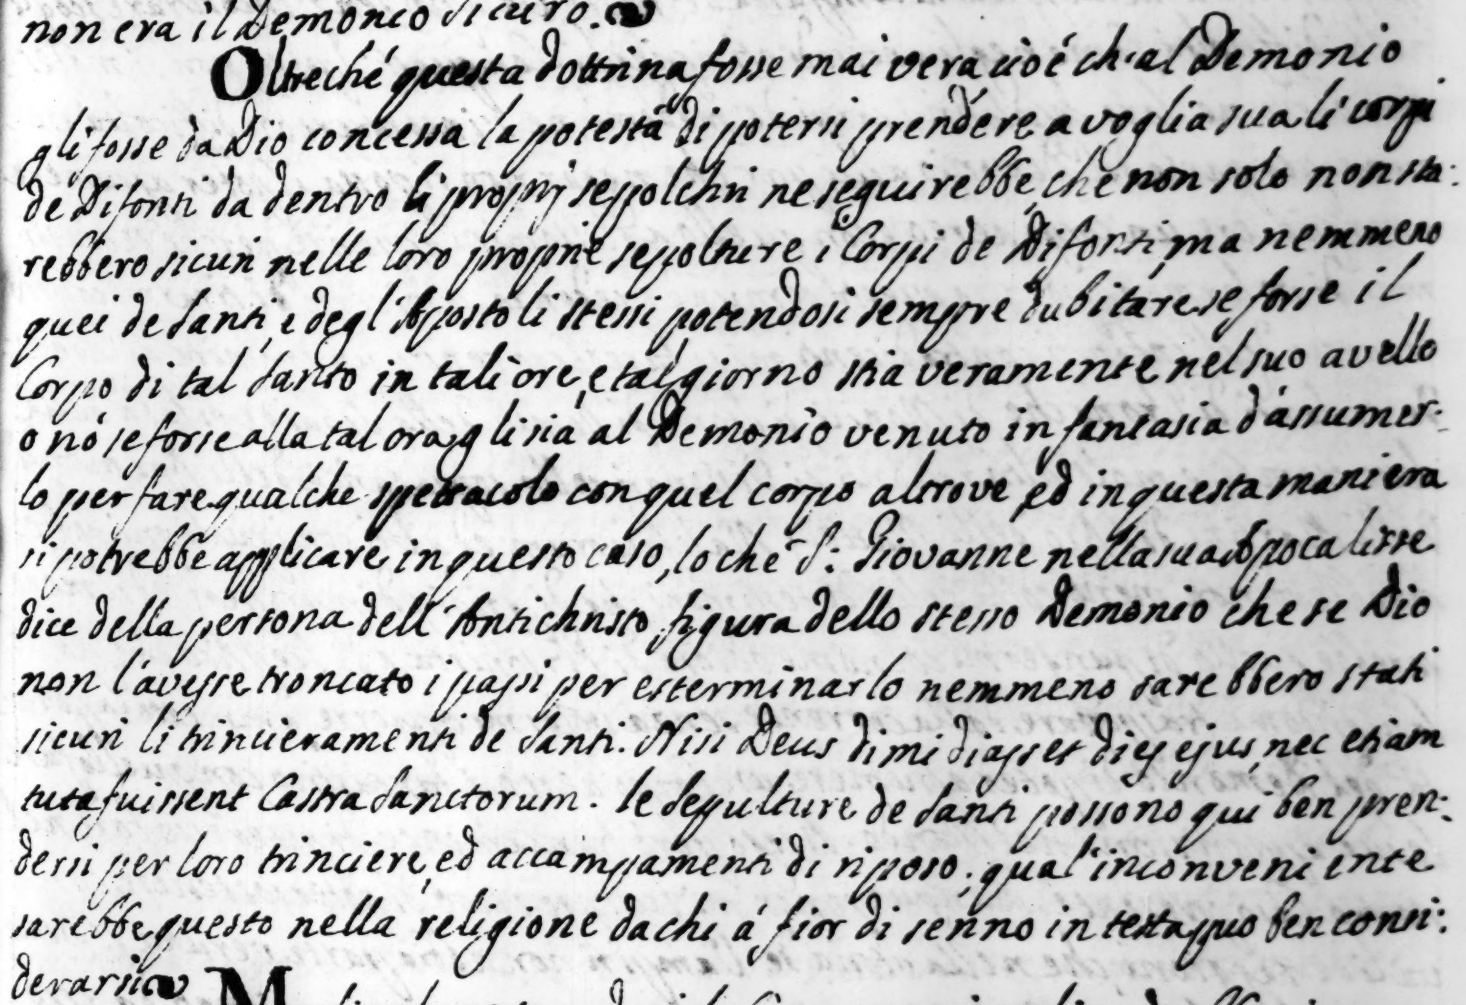 non era il Demonio sicuro.
Oltreché questa dottrina fosse mai vera cioé ch'al Demonio
gli fosse da Dio concessa la potestà di potersi prendere a voglia sua li corpi
de Difonti da dentro li proprj sepolchri ne seguirebbe, che non solo non sta:
rebbero sicuri nelle loro proprie sepolture i Corpi de Difonti, ma nemmeno
quei de Santi, e degl'Apostoli stessi, potendosi sempre dubitare se forse il
Corpo di tal Santo in tali ore, e tal giorno stia veramente nel suo avello
o nó, se forse alla tal ora gli sia al Demonio venuto in fantasia d'assumer-
lo per fare qualche spettacolo con quel corpo altrove, ed in questa maniera
si potrebbe applicare in questo caso, lo che S: Giovanne nella sua Apocalisse
dice della persona dell'Antichristo, figura dello stesso Demonio che se Dio
non l'avesse troncato i passi per esterminarlo nemmeno sarebbero stati
sicuri li trincieramenti de Santi. Nisi Deus dimidiasset dies ejus, nec etiam
tuta fuissent Castra Sanctorum. le Sepulture de Santi possono qui ben pren:
dersi per loro trinciere, ed accampamenti di riposo; qual'inconveniente
sarebbe questo nella religione da chi á fior di senno in testa, puo ben consi:
derarsi